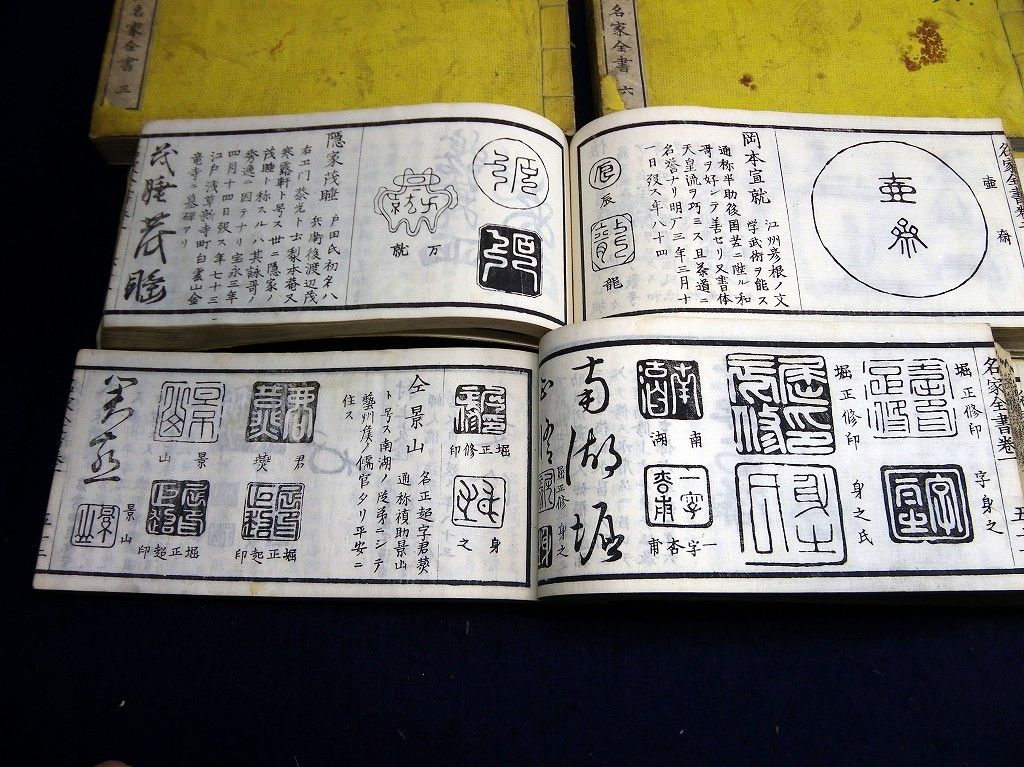 名家全書 三
名家全書 六
名家全書
壷齋
壷齋
岡本宣就
江州彦根ノ文
学武術ヲ能ス
通称半助後国芸二陞ル和
哥ヲ好シテ善セリ又書体
天皇流ヲ巧ミス且茶道ニ
名誉ナリ明厂三年三月十
一日歿ス年八十四
辰
龍
万
就
隠家茂睡
戸田氏初名ハ
兵衛後渡辺茂
右エ门
寒露軒ト号ス世ニ隠家ノ
茂睡ト称スルハ其詠哥ノ
秀逸ニ因テナリ宝永三年
四月十四日歿ス年七十三
江戸浅草新寺町白雲山金
竜寺ニ墓碑アリ
茂睡
茂睡
名家全書巻
堀正修印
字身之
堀正修印
身之氏
南湖
一字杏甫
南湖堀
堀正修
身之
堀正修印
身之
仝景山
名正超字君燠
通称禎助景山
ト号ス南湖ノ
ニシテ
藝州侯ノ儒官タリ平安ニ
住ス
君燠
堀正超印
景山
堀正超印
景山